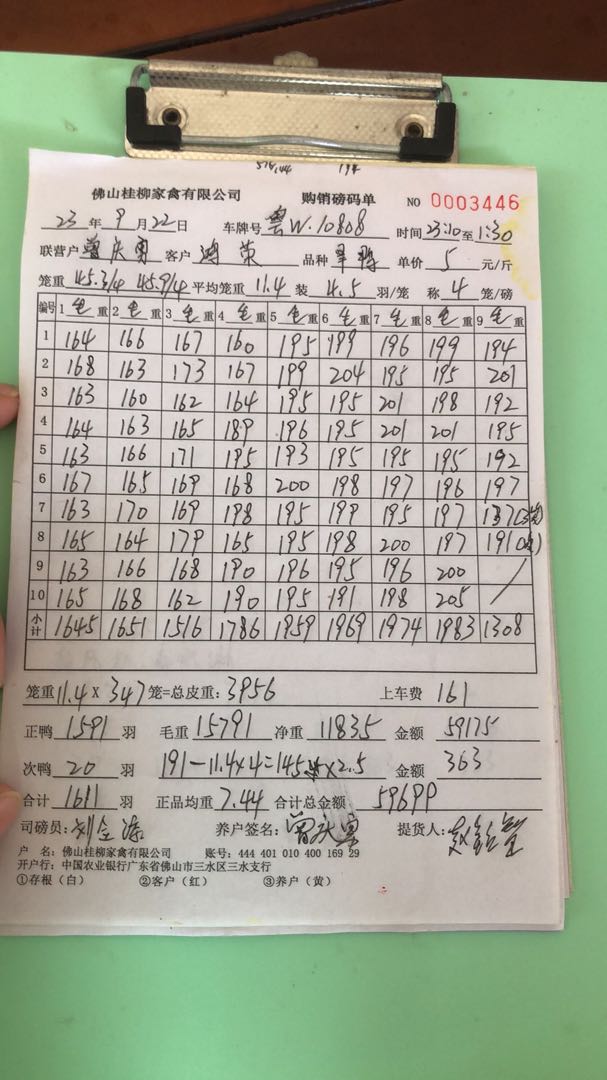 佛山桂柳家禽有限公司 购销磅码单 NO 0003446
23年9月22日 车牌号 粤W·10808 时间23:10至1:30
联营户 曾庆勇 客户 鸿荣 品种 单价 5 元/斤
笼重 45.3/4 45.9/4 平均笼重 11.4 装 4.5 羽/笼 称 4 笼/磅
编号 1 毛重 2 毛重 3 毛重 4 毛重 5 毛重 6 毛重 7 毛重 8 毛重 9 毛重
1 164 166 167 160 195 199 196 199 194
2 168 163 173 167 199 204 195 195 201
3 163 160 162 164 195 195 201 198 192
4 164 163 165 189 196 195 201 201 195
5 163 166 171 195 193 195 195 195 192
6 167 165 169 168 200 198 197 196 197
7 163 170 169 198 195 199 195 197 137
8 165 164 179 165 195 198 200 197 191
9 163 166 168 190 196 195 196 200
10 165 168 162 190 195 191 198 205
小计 1645 1651 1516 1786 1959 1969 1974 1983 1308
笼重11.4 X 347笼=总皮重:3956 上车费 161
正鸭 1591 羽 毛重 15791 净重 11835 金额 59175
次鸭 20 羽 191-11.4×4=145 ×2.5 金额 363
合计 1611 羽 正品均重 7.44 合计总金额 59699
司磅员: 养户签名: 曾庆勇 提货人:
户 名:佛山桂柳家禽有限公司 账号:444 401 010 400 169 29
开户行:中国农业银行广东省佛山市三水区三水支行
①存根(白) ②客户(红) ③养户(黄)